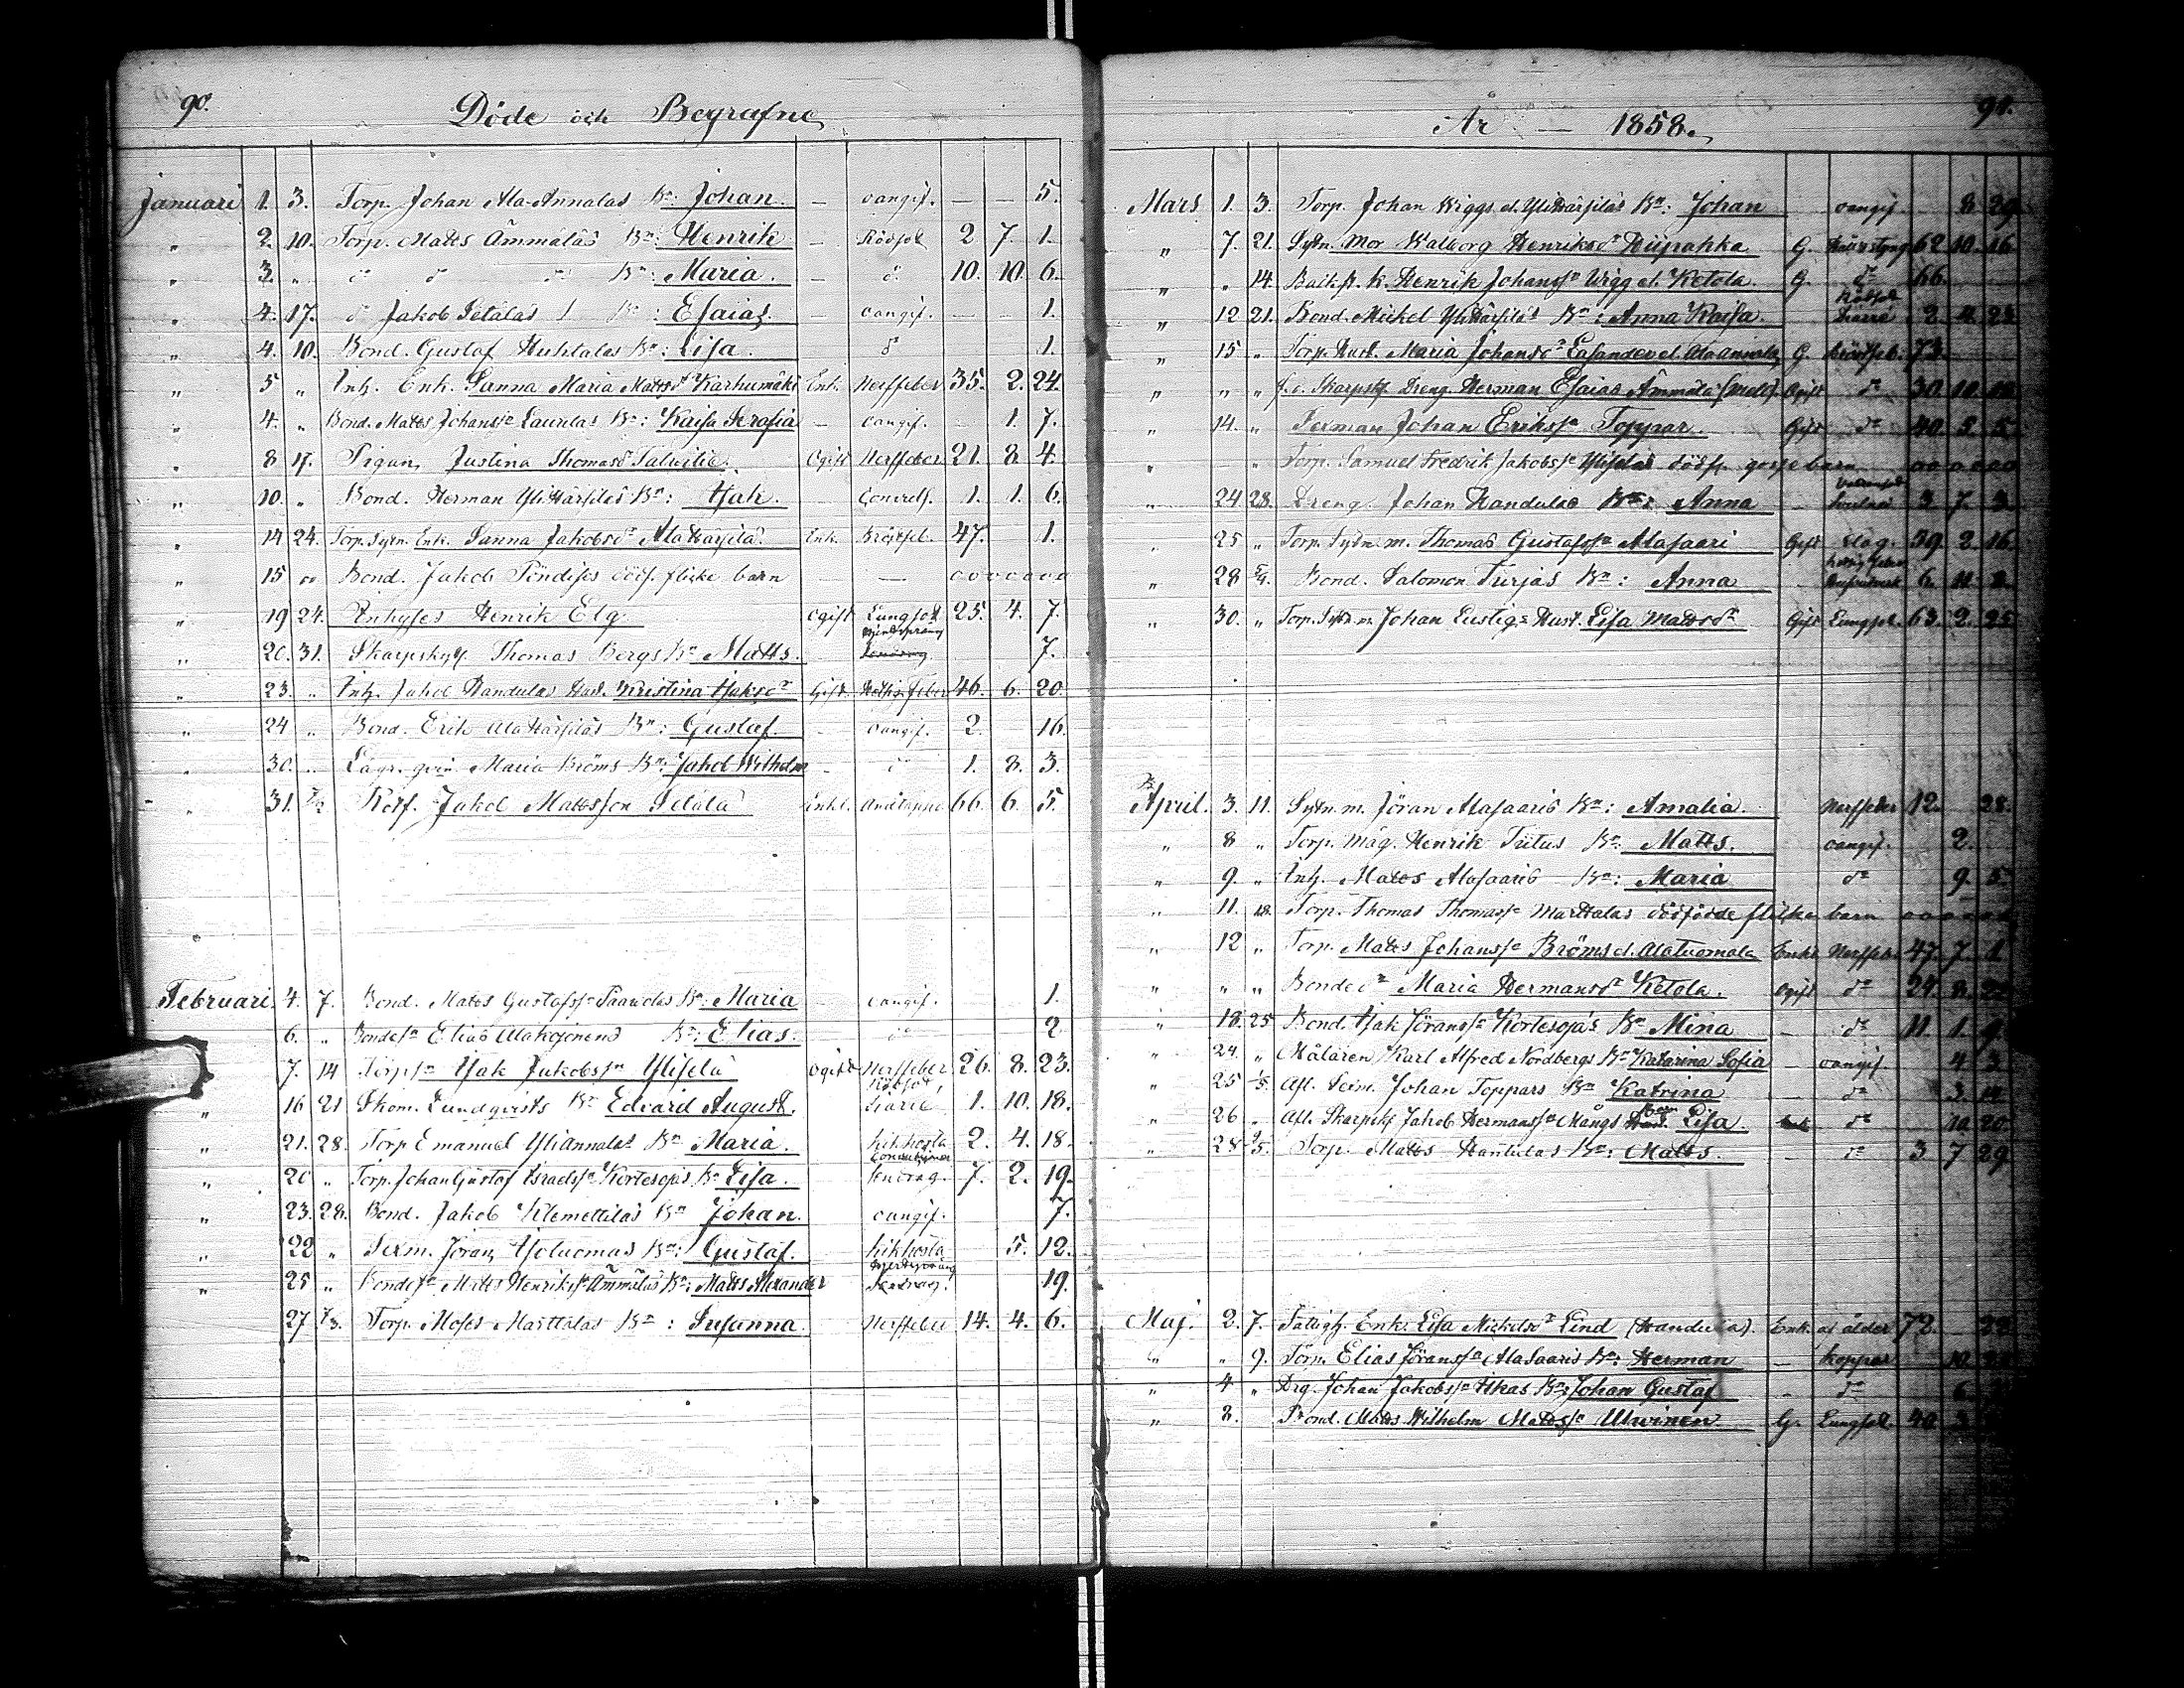 90.
Döde och Begrafne
Januari 1. 3. Torp. Johan Ala-Annalas Bn: Johan. — oangif. — — 5.
" 2. 10. Torp. Matts Ämmäläs Bn: Henrik — Rödsot 2 7. 1.
" 3. " do do do Bn: Maria. — do 10. 10. 6.
" 4. 17. do Jakob Setäläs Bn: Esaias. — oangif. — 1.
" 4. 10. Bond. Gustaf Huhtalas Bn: Lisa. do 1.
" 5 " Inh. Enk. Sanna Maria Mattsdr Karhumäki Enk. Nerffeber 35. 2. 24.
" 4. " Bond. Matts Johanss. Laurilas Bn: Kaisa Serafia — oangif. — 1. 7.
" 8 17. Pigan, Justina Thomasdr Talvitie. Ogift Nerffeber. 21. 8. 4.
" 10. " Bond. Herman YliHärsiläs Bn: Isak. Convuls. 1. 1. 6.
" 14 24. Torp. Sytn. Enk. Sanna Jakobsdr AlaHärsilä. Enk. Bröstfeb. 47. 1.
" 15 oo Bond. Jakob Pöndises dödf. flicke barn — ooooooo
" 19 24. Inhyses Henrik Elg. Ogift Lungsot 25. 4. 7.
" 20. 31. Skarpskytt. Thomas Bergs Bn Matts. 7.
" 23. " Inh. Jakob Handulas Hust. Kristina Isaksdr Gift. Feber 46. 6. 20.
" 24 " Bond. Erik AlaHärsiläs Bn: Gustaf. — oangif. 2. 16.
" 30. " Lägr. qvin. Maria Bröms Bn: Jakob Wilhelm — do 1. 8. 3.
" 31. 7/2 Rotf. Jakob Mattsson Setälä Enkl. Andtäppa 66. 6. 5.
Februari. 4. 7. Bond. Matts Gustafss. Paavolas Bn: Maria — oangif. 1.
6. " Bondesn Elias Alakojonens Bn: Elias. do 2
7. 14 Torpsn Isak Jakobssn Yliselä Ogift Nerffeber 26. 8. 23.
" 16 21 Skom. Lundqvists Bn Edvard August. Rödsot, Diarré 1. 10. 18.
" 21. 28. Torp Emanuel Yliannalas Bn Maria. kikhosta 2. 4. 18.
" 20 " Torp. Johan Gustaf Israelss. Kortesojas Bn Lisa. Sendrag. 7. 2. 19.
" 23. 28. Bond. Jakob Klemettiläs Bn Johan. oangif. 7.
" 22 " Sexm. Jöran Isoluomas Bn: Gustaf. kikhosta 5. 12.
" 25 " Bondesn Matts Henrikss. Ämmäläs Bn: Matts Alexander Sendrag. 19.
27 7/3. Torp. Moses Marttalas Bn: Susanna. Nerffeber 14. 4. 6.
91.
År — 1858.
Mars 1. 3. Torp. Johan Wiggs el. YliHärsiläs Bn: Johan oangif 8 29.
" 7. 21. Sytn. Mor Walborg Henriksdr Hiipakka G. Håll o styng 62 10. 16.
" " 14. Backst. k. Henrik Johanss. Wigg el. Ketola. G. do 66.
" 12 21. Bond. Mickel YliHärsiläs Bn: Anna Kaisa. Rödsot Diarré 2. 4. 23
" 15 " Torp. Hust. Maria Johansdr Casander el. AlaAnnala G. bröstfeb. 73.
" " " f. d. Skarpsk. Dreng Herman Esaias Ämmälä (Mell). Ogift do 30. 10.
" 14. " Sexman Johan Erikss. Toppar. Gift do 40. 5. 5.
" — " Torp. Samuel Fredrik Jakobss. Yliseläs dödf. gosse barn oo o o oo
" 24 28. Dreng. Johan Handulas Bn: Anna 3 7. 3.
" 25 " Torp. Sytn. m. Thomas Gustafss. Alasaari Gift slag. 59. 2. 16.
" 28 5/4. Bond. Salomon Turjas Bn: Anna 6. 11. 2.
" 30. " Torp. Sytn. m. Johan Lustigs Hust. Lisa Mattsdr Gift Lungsot. 63. 2. 25
April. 3. 11. Sytn. m. Jöran Alasaaris Bn: Amalia. Nerffeber 12. 28.
" 8 " Torp. Måg. Henrik Tiitus Bn: Matts. oangif. 2.
" 9. " Inh. Matts Alasaaris Bn: Maria do 9. 5.
" 11. 18. Torp. Thomas Thomass. Marttalas dödfödde flicke barn oooooo
" 12 " Torp. Matts Johanss. Bröms el. Alatuomala Enkl. Nerffeb. 47. 7. 1
" " " Bondedr Maria Hermansdr Ketola. Ogift do 24. 8.
" 18. 25 Bond. Isak Jöranss. Kortesojas Bn Mina — do 11. 1. 9.
" 24. " Målaren Karl Alfred Nordbergs Bn Katarina Sofia — oangif. 4 3.
" 25 1/5. Afl. Sexm. Johan Toppars Bn Katrina — do 3. 14
" 26 " Afl. Skarpsk. Jakob Hermanss. Mångs Barn Lisa. do 10 20.
" 28 2/5. Torp. Matts Hantulas Bn: Matts. — do 3 7 29
Maj. 2. 7. Fattigh. Enk. Lisa Mickelsdr Lind (Handula). Enk. af ålder 72. 22
" " 9. Torp. Elias Jöranss. AlaSaaris Bn: Herman — koppor 10.
" 4 " Drg. Johan Jakobss. Iskas Bn: Johan Gustaf — do 6.
" 8. Bond. Matts Wilhelm Matts. Ulwinen. G. Lungsot. 40. 3.